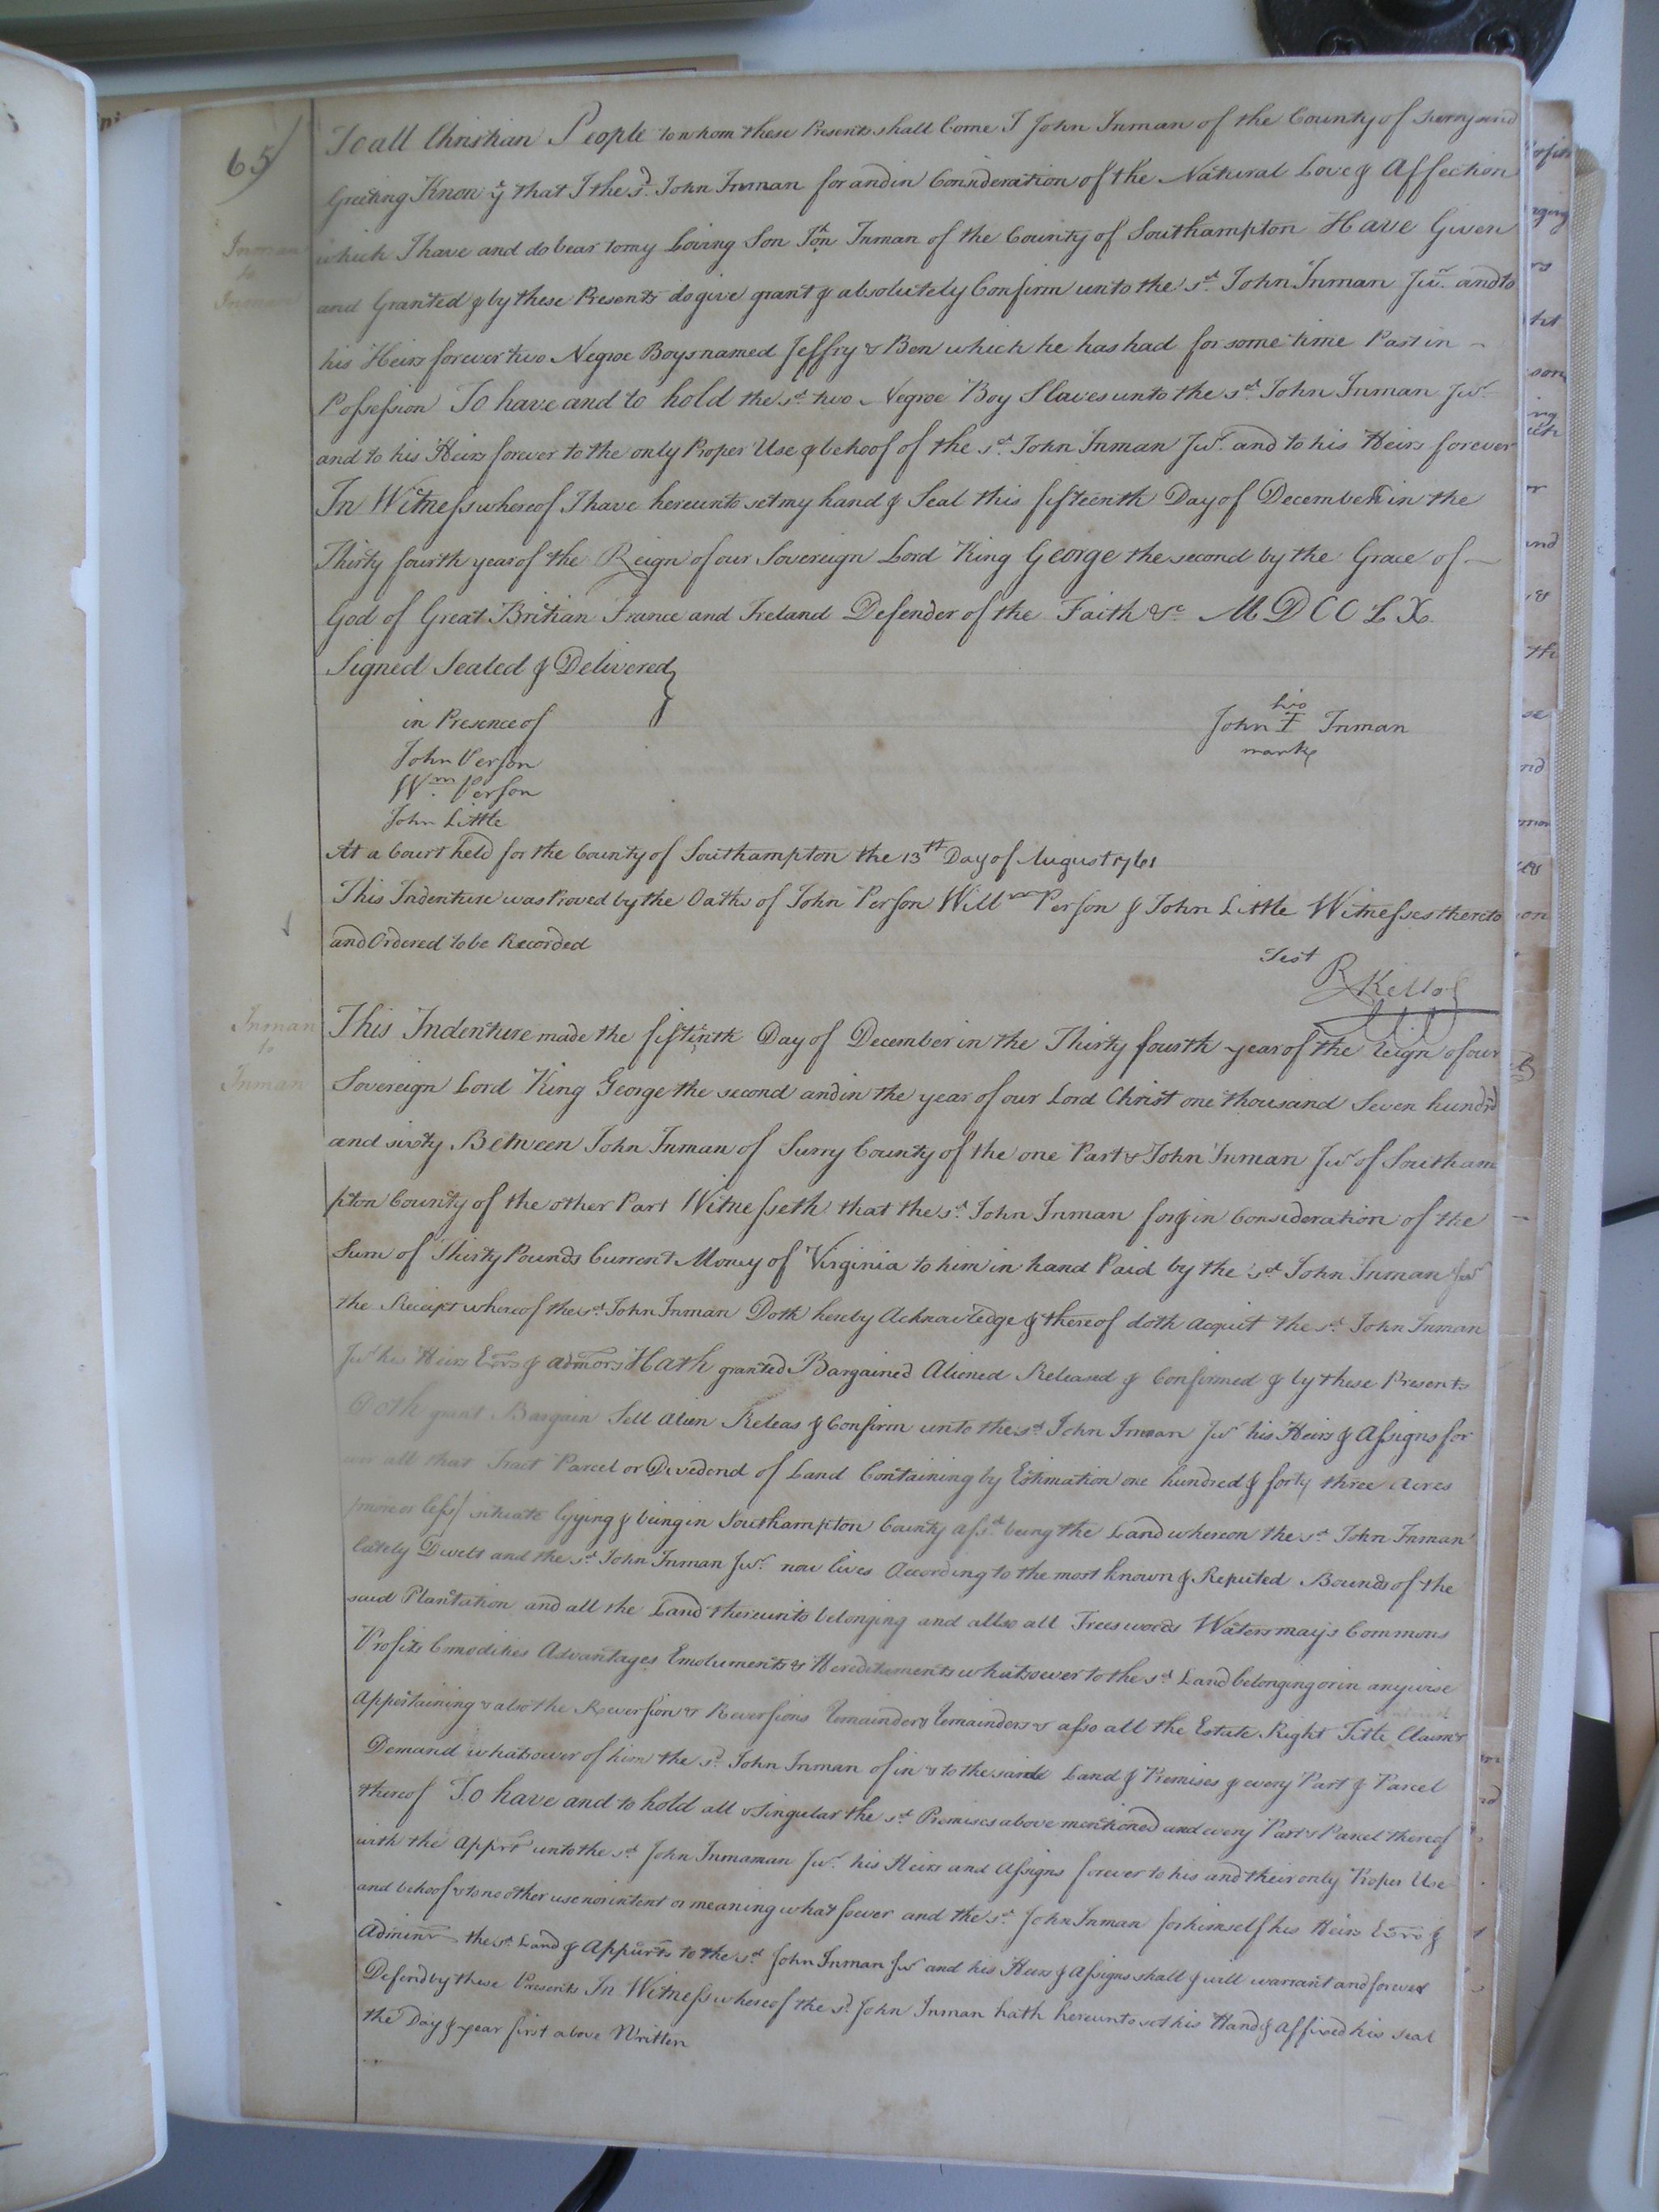 65
To all Christian People to whom these Presents shall Come I John Inman of the County of Surry send
Greeting Know ye that I the sd. John Inman for and in Consideration of the Natural Love & Affection
Inman to Inman
which I have and do bear to my Loving Son Jon Inman of the County of Southampton Have Given
and Granted & by these Presents do give grant & absolutely Confirm unto the sd. John Inman Junr. and to
his Heirs forever two Negroe Boys named Jeffry & Ben which he has had for some time Past in
Possession To have and to hold the sd. two Negroe Boy Slaves unto the sd. John Inman Junr
and to his Heirs forever to the only Proper Use & behoof of the sd. John Inman Junr. and to his Heirs forever
In Witness whereof I have hereunto set my hand & Seal this fifteenth Day of December in the
Thirty fourth year of the Reign of our Sovereign Lord King George the second by the Grace of
God of Great Britian France and Ireland Defender of the Faith &c MDCCLX
Signed Sealed & Delivered
in Presence of
his
John I Inman
mark
John Person
Wm. Person
John Little
At a Court held for the County of Southampton the 13th Day of August 1761
This Indenture was Proved by the Oaths of John Person Willm Person & John Little Witnesses thereto
and Ordered to be Recorded
Test
R Kello
Inman to Inman
This Indenture made the fiftinth Day of December in the Thirty fourth year of the reign of our
Sovereign Lord King George the second and in the year of our Lord Christ one thousand Seven hundrd
and sixty Between John Inman of Surry County of the one Part & John Inman Junr of Southam
pton County of the other Part Witnesseth that the sd. John Inman for & in Consideration of the
Sum of Thirty Pounds Current Money of Virginia to him in hand Paid by the sd John Inman Junr
the Receipt whereof the sd. John Inman Doth hereby Acknowledge & thereof doth acquit the sd. John Inman
Junr his Heirs Exrs & admors Hath granted Bargained Aliened Releasd & Confirmed & by these Presents
Doth grant Bargain Sell alien Releas & Confirm unto the sd. John Inman Junr his Heirs & Assigns for
ever all that Tract Parcel or Devedend of Land Containing by Estimation one hundred & forty three acres
/more or less/ situate lying & being in Southampton County afsd. being the Land whereon the sd. John Inman
lately Dwelt and the sd. John Inman Junr. now lives According to the most known & Reputed Bounds of the
said Plantation and all the Land thereunto belonging and allso all Trees woods Waters ways Commons
Profits Comodities Advantages Emoluments & Hereditaments whatsoever to the sd Land belonging or in anywise
appertaining & also the Reversion & Reversions remainder & remainders & also all the Estate Right Title Claim &
Demand whatsoever of him the sd. John Inman of in & to the said Land & Premises & every Part & Parcel
thereof To have and to hold all & Singular the sd. Premises above mentioned and every Part & Parcel thereof
with the Apprs unto the sd. John Inmaman Junr. his Heirs and Assigns forever to his and their only Proper Use
and behoof & to no other use nor intent or meaning what soever and the sd. John Inman for himself his Heirs Exrs &
Adminrs the sd. Land & Appurts to the sd John Inman Junr and his Heirs & Assigns shall & will warrant and forever
Defend by these Presents In Witness whereof the sd. John Inman hath hereunto set his Hand & affixed his seal
the Day & year first above Written